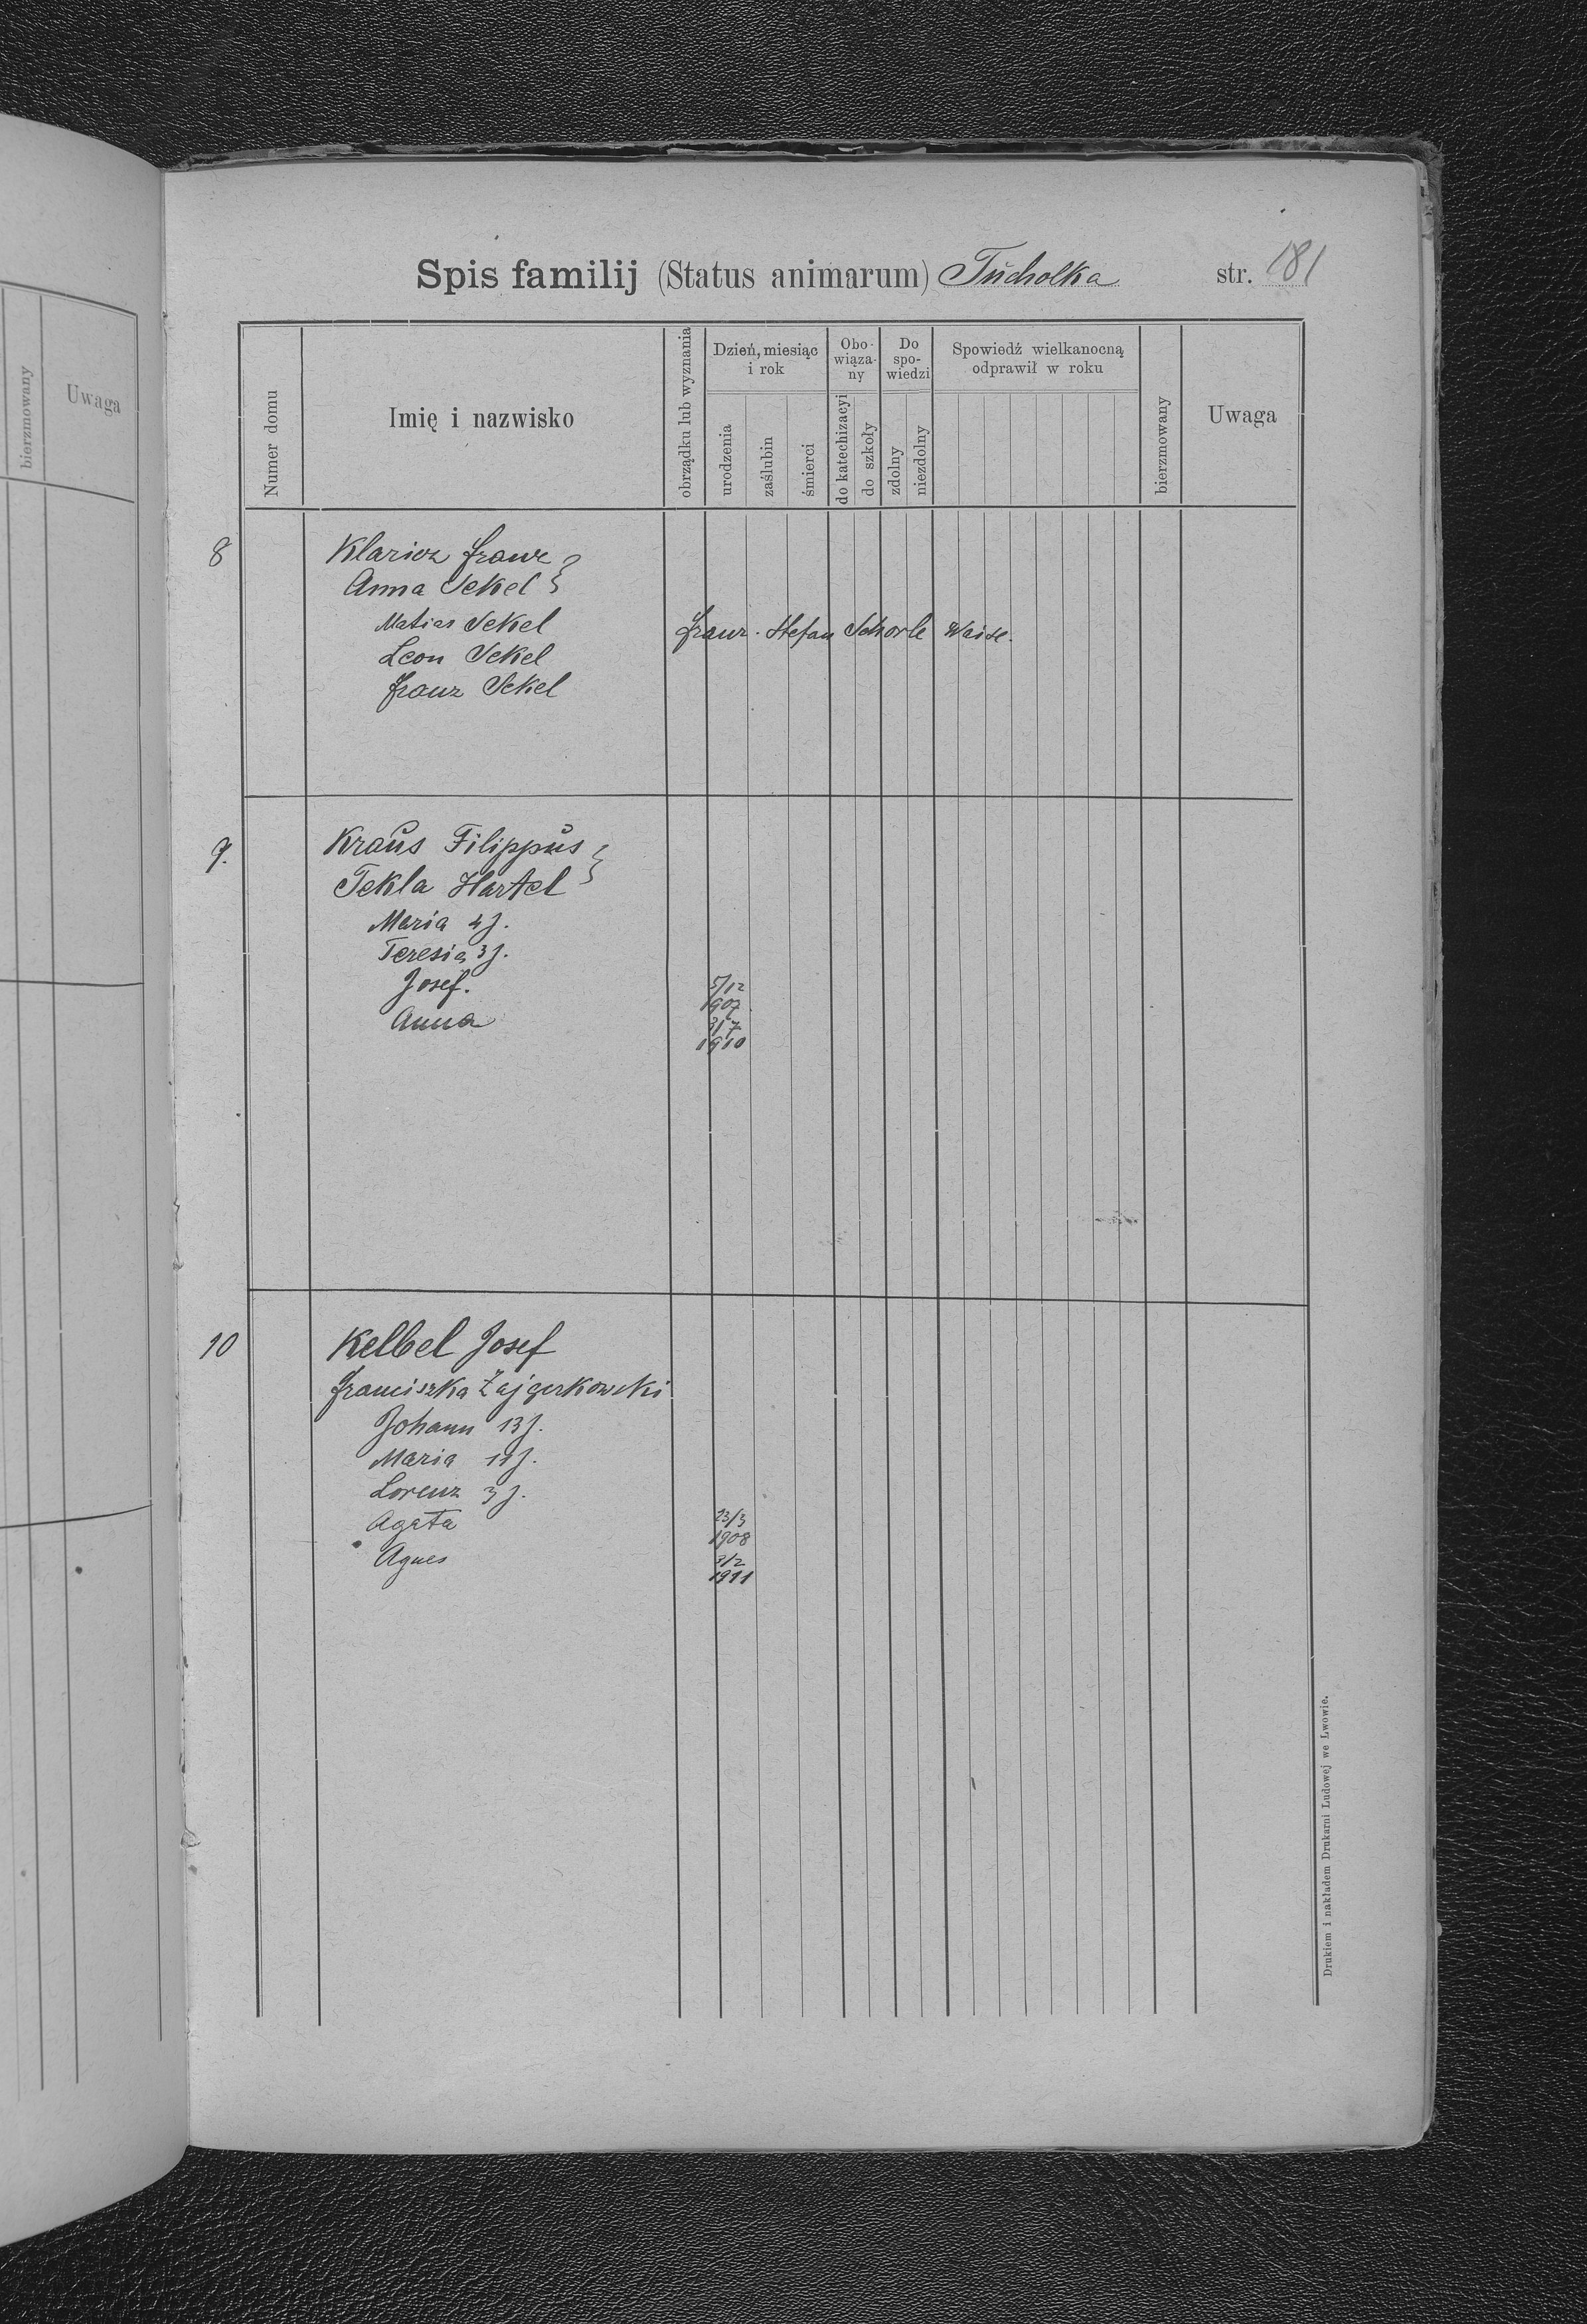 bierzmowany
Uwaga
Spis familij (Status animarum) Tucholka str. 181
Numer domu
Imię i nazwisko
obrządku lub wyznania
Dzień, miesiąc i rok
urodzenia
zaślubin
śmierci
Obo-
wiąza-
ny
do katechizacyi
do szkoły
Do
spo-
wiedzi
zdolny
niezdolny
Spowiedź wielkanocną
odprawił w roku
bierzmowany
Uwaga
8 Klaricz Franz
Anna Sekel
Matias Sekel Franz. Stefan Schorle Waise.
Leon Sekel
Franz Sekel
9. Kraus Filippus
Tekla Hartel
Maria 4 J.
Teresia 3 J.
Josef. 5/12
1907
Anna /7
1910
10 Kelbel Josef
Franciszka Zajgerkowski
Johann 13 J.
Maria 11 J.
Lorenz 3 J.
Agata 23/3
1908
Agnes /2
1911
Drukiem i nakładem Drukarni Ludowej we Lwowie.